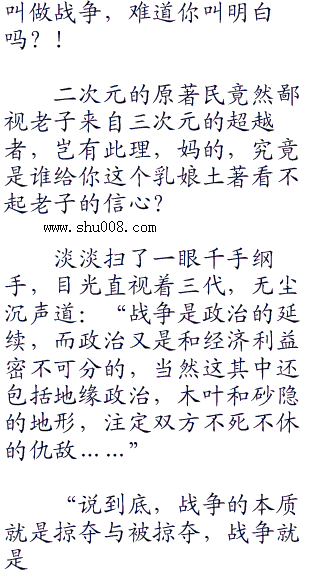 叫做战争，难道你叫明白
吗？！
二次元的原著民竟然鄙
视老子来自三次元的超越
者，岂有此理，妈的，究竟
是谁给你这个乳娘土著看不
起老子的信心？
www.shu008.com
淡淡扫了一眼千手纲
手，目光直视着三代，无尘
沉声道：“战争是政治的延
续，而政治又是和经济利益
密不可分的，当然这其中还
包括地缘政治，木叶和砂隐
的地形，注定双方不死不休
的仇敌……”
“说到底，战争的本质
就是掠夺与被掠夺，战争就
是